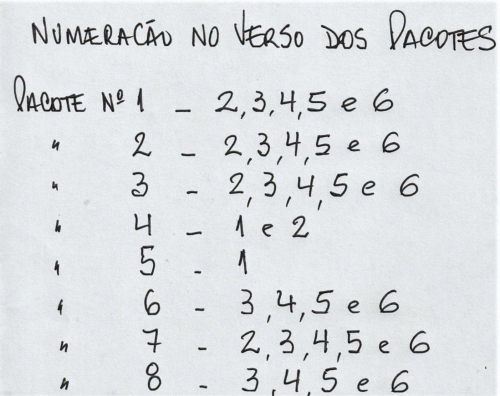 NUMERACÃO NO VERSO DOS PACOTES
PACOTE Nº 1 - 2,3,4,5 e 6
" 2 - 2,3,4,5 e 6
" 3 - 2,3,4,5 e 6
" 4 - 1 e 2
" 5 - 1
" 6 - 3,4,5 e 6
" 7 - 2,3,4,5 e 6
" 8 - 3,4,5 e 6